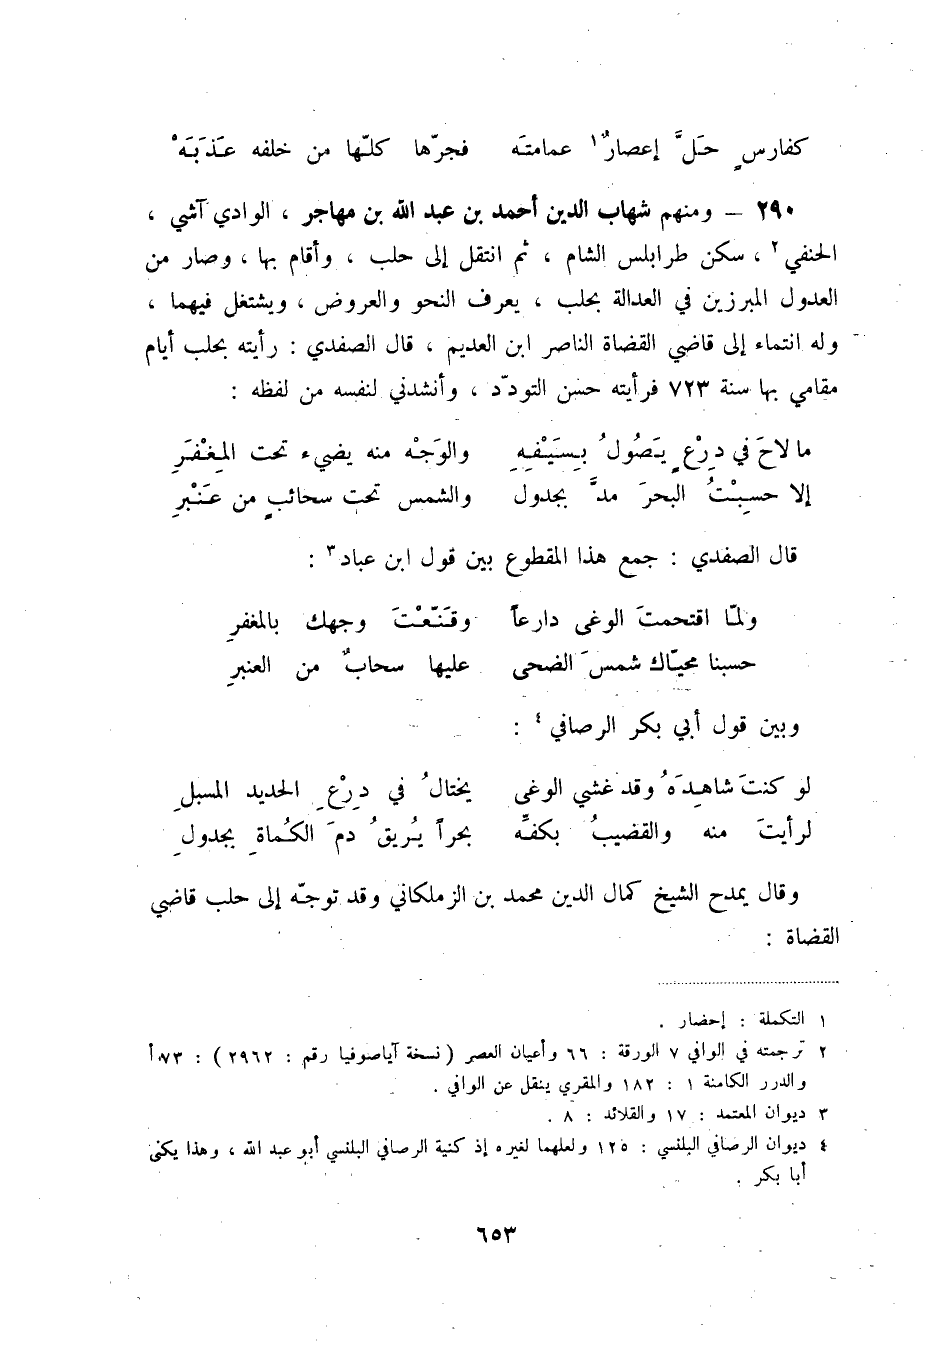 كفارسٍ حَلَّ إعصارٌ١ عمامتَه فجرّها كلّها من خلفه عَذَبَهْ
٢٩٠ – ومنهم شهاب الدين أحمد بن عبد الله بن مهاجر ، الوادي آشي ،
الحنفي٢ ، سكن طرابلس الشام ، ثم انتقل إلى حلب ، وأقام بها ، وصار من
العدول المبرزين في العدالة بحلب ، يعرف النحو والعروض ، ويشتغل فيهما ،
وله انتماء إلى قاضي القضاة الناصر ابن العديم ، قال الصفدي : رأيته بحلب أيام
مقامي بها سنة ٧٢٣ فرأيته حسن التودّد ، وأنشدني لنفسه من لفظه :
ما لاحَ في دِرْعٍ يَصُولُ بِسَيْفِهِ والوَجْه منه يضيء تحت المِغْفَرِ
إلا حسِبْتُ البحرَ مدَّ بجدول والشمس تحت سحائبٍ من عَنْبرِ
قال الصفدي : جمع هذا المقطوع بين قول ابن عباد٣ :
ولمّا اقتحمتَ الوغى دارعاً وقَنّعْتَ وجهك بالمغفرِ
حسبنا محيّاك شمسَ الضحى عليها سحابٌ من العنبرِ
وبين قول أبي بكر الرصافي٤ :
لو كنتَ شاهِدَهُ وقد غشي الوغى يختالُ في دِرْعِ الحديد المسبلِ
لرأيتَ منه والقضيبُ بكفِّه بحراً يُريقُ دمَ الكُماةِ بجدولِ
وقال يمدح الشيخ كمال الدين محمد بن الزملكاني وقد توجّه إلى حلب قاضي
القضاة :
١ التكملة : إحضار .
٢ ترجمته في الوافي ٧ الورقة : ٦٦ وأعيان العصر (نسخة آياصوفيا رقم : ٢٩٦٢) : ٧٣أ
والدرر الكامنة ١ : ١٨٢ والمقري ينقل عن الوافي .
٣ ديوان المعتمد : ١٧ والقلائد : ٨ .
٤ ديوان الرصافي البلنسي : ١٢٥ ولعلهما لغيره إذ كنية الرصافي البلنسي أبو عبد الله ، وهذا يكنى
أبا بكر .
٦٥٣